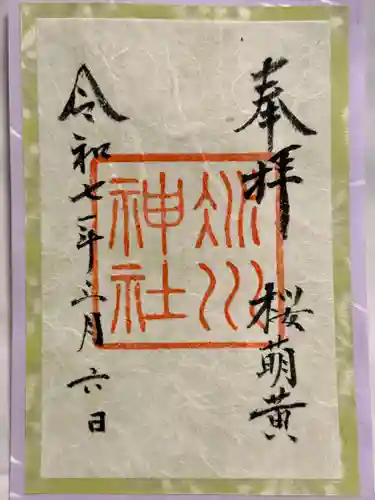 奉拝 桜萌黄
冰川
神社
令和七年三月六日